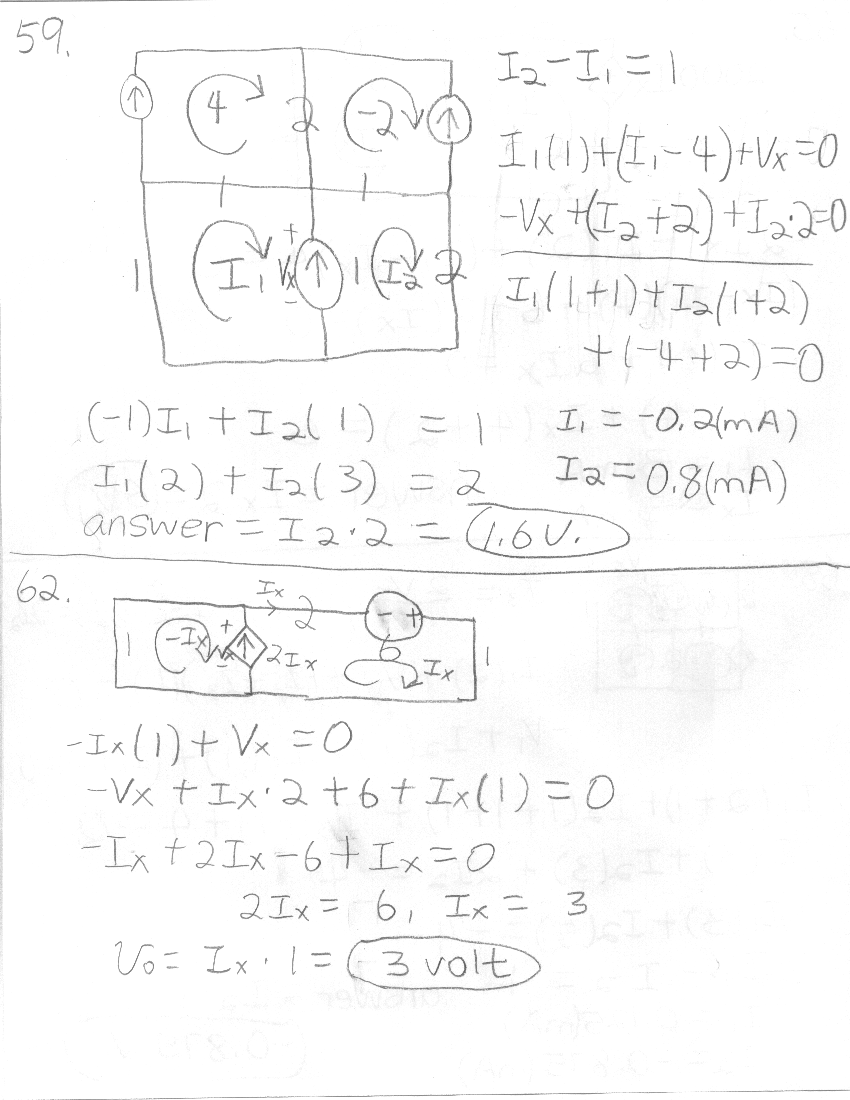 59.
I₂-I₁=1
4
2
-2
I₁(1)+(I₁-4)+Vx=0
-Vx+(I₂+2)+I₂·2=0
1
1
1
I₁
+
Vx
-
1
I₂
2
I₁(1+1)+I₂(1+2)
+(-4+2)=0
(-1)I₁+I₂(1)=1
I₁=-0.2(mA)
I₁(2)+I₂(3)=2
I₂=0.8(mA)
answer=I₂·2=1.6V.
62.
Ix
2
-
+
1
-Ix
+
Vx
-
2Ix
6
Ix
1
-Ix(1)+Vx=0
-Vx+Ix·2+6+Ix(1)=0
-Ix+2Ix-6+Ix=0
2Ix=6, Ix=3
Vo=Ix·1=3 volt